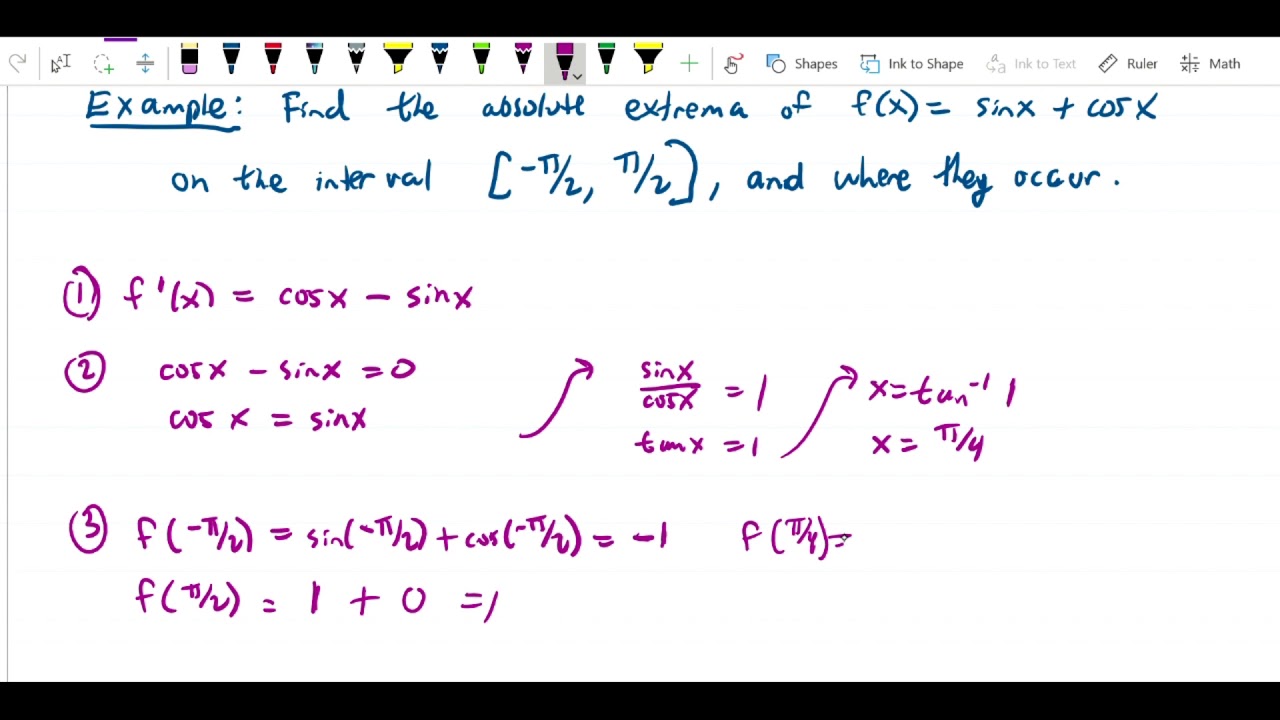 Shapes Ink to Shape Ink to Text Ruler Math
Example: Find the absolute extrema of f(x) = sinx + cosx
on the interval [-π/2, π/2], and where they occur.
① f'(x) = cosx - sinx
② cosx - sinx = 0
cos x = sinx
sinx/cosx = 1
tanx = 1
x = tan⁻¹ 1
x = π/4
③ f(-π/2) = sin(-π/2) + cos(-π/2) = -1 f(π/4) =
f(π/2) = 1 + 0 = 1